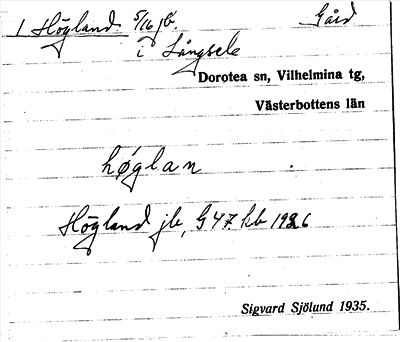 1 Högland 5/16 jb. Gård
i Långsele
Dorotea sn, Vilhelmina tg,
Västerbottens län
høglan
Högland jb, G 47 kb 1926
Sigvard Sjölund 1935.